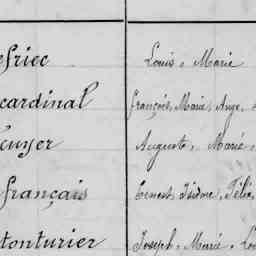 efriec Louis, Marie
cardinal françois, Marie, Ange,
cuyer Auguste, Marie,
français Ernest, Isidore, Félix,
tonturier Joseph, Marie, Lou